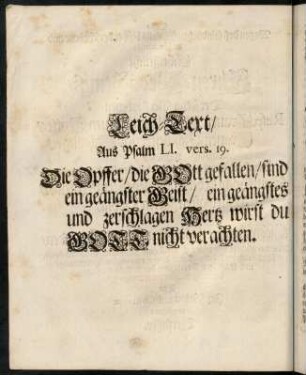 Leich-Text/
Aus Psalm LI. vers. 19.
Die Opffer/die GOtt gefallen/sind
ein geängster Geist/ ein geängstes
und zerschlagen Hertz wirst du
GOTT nicht verachten.